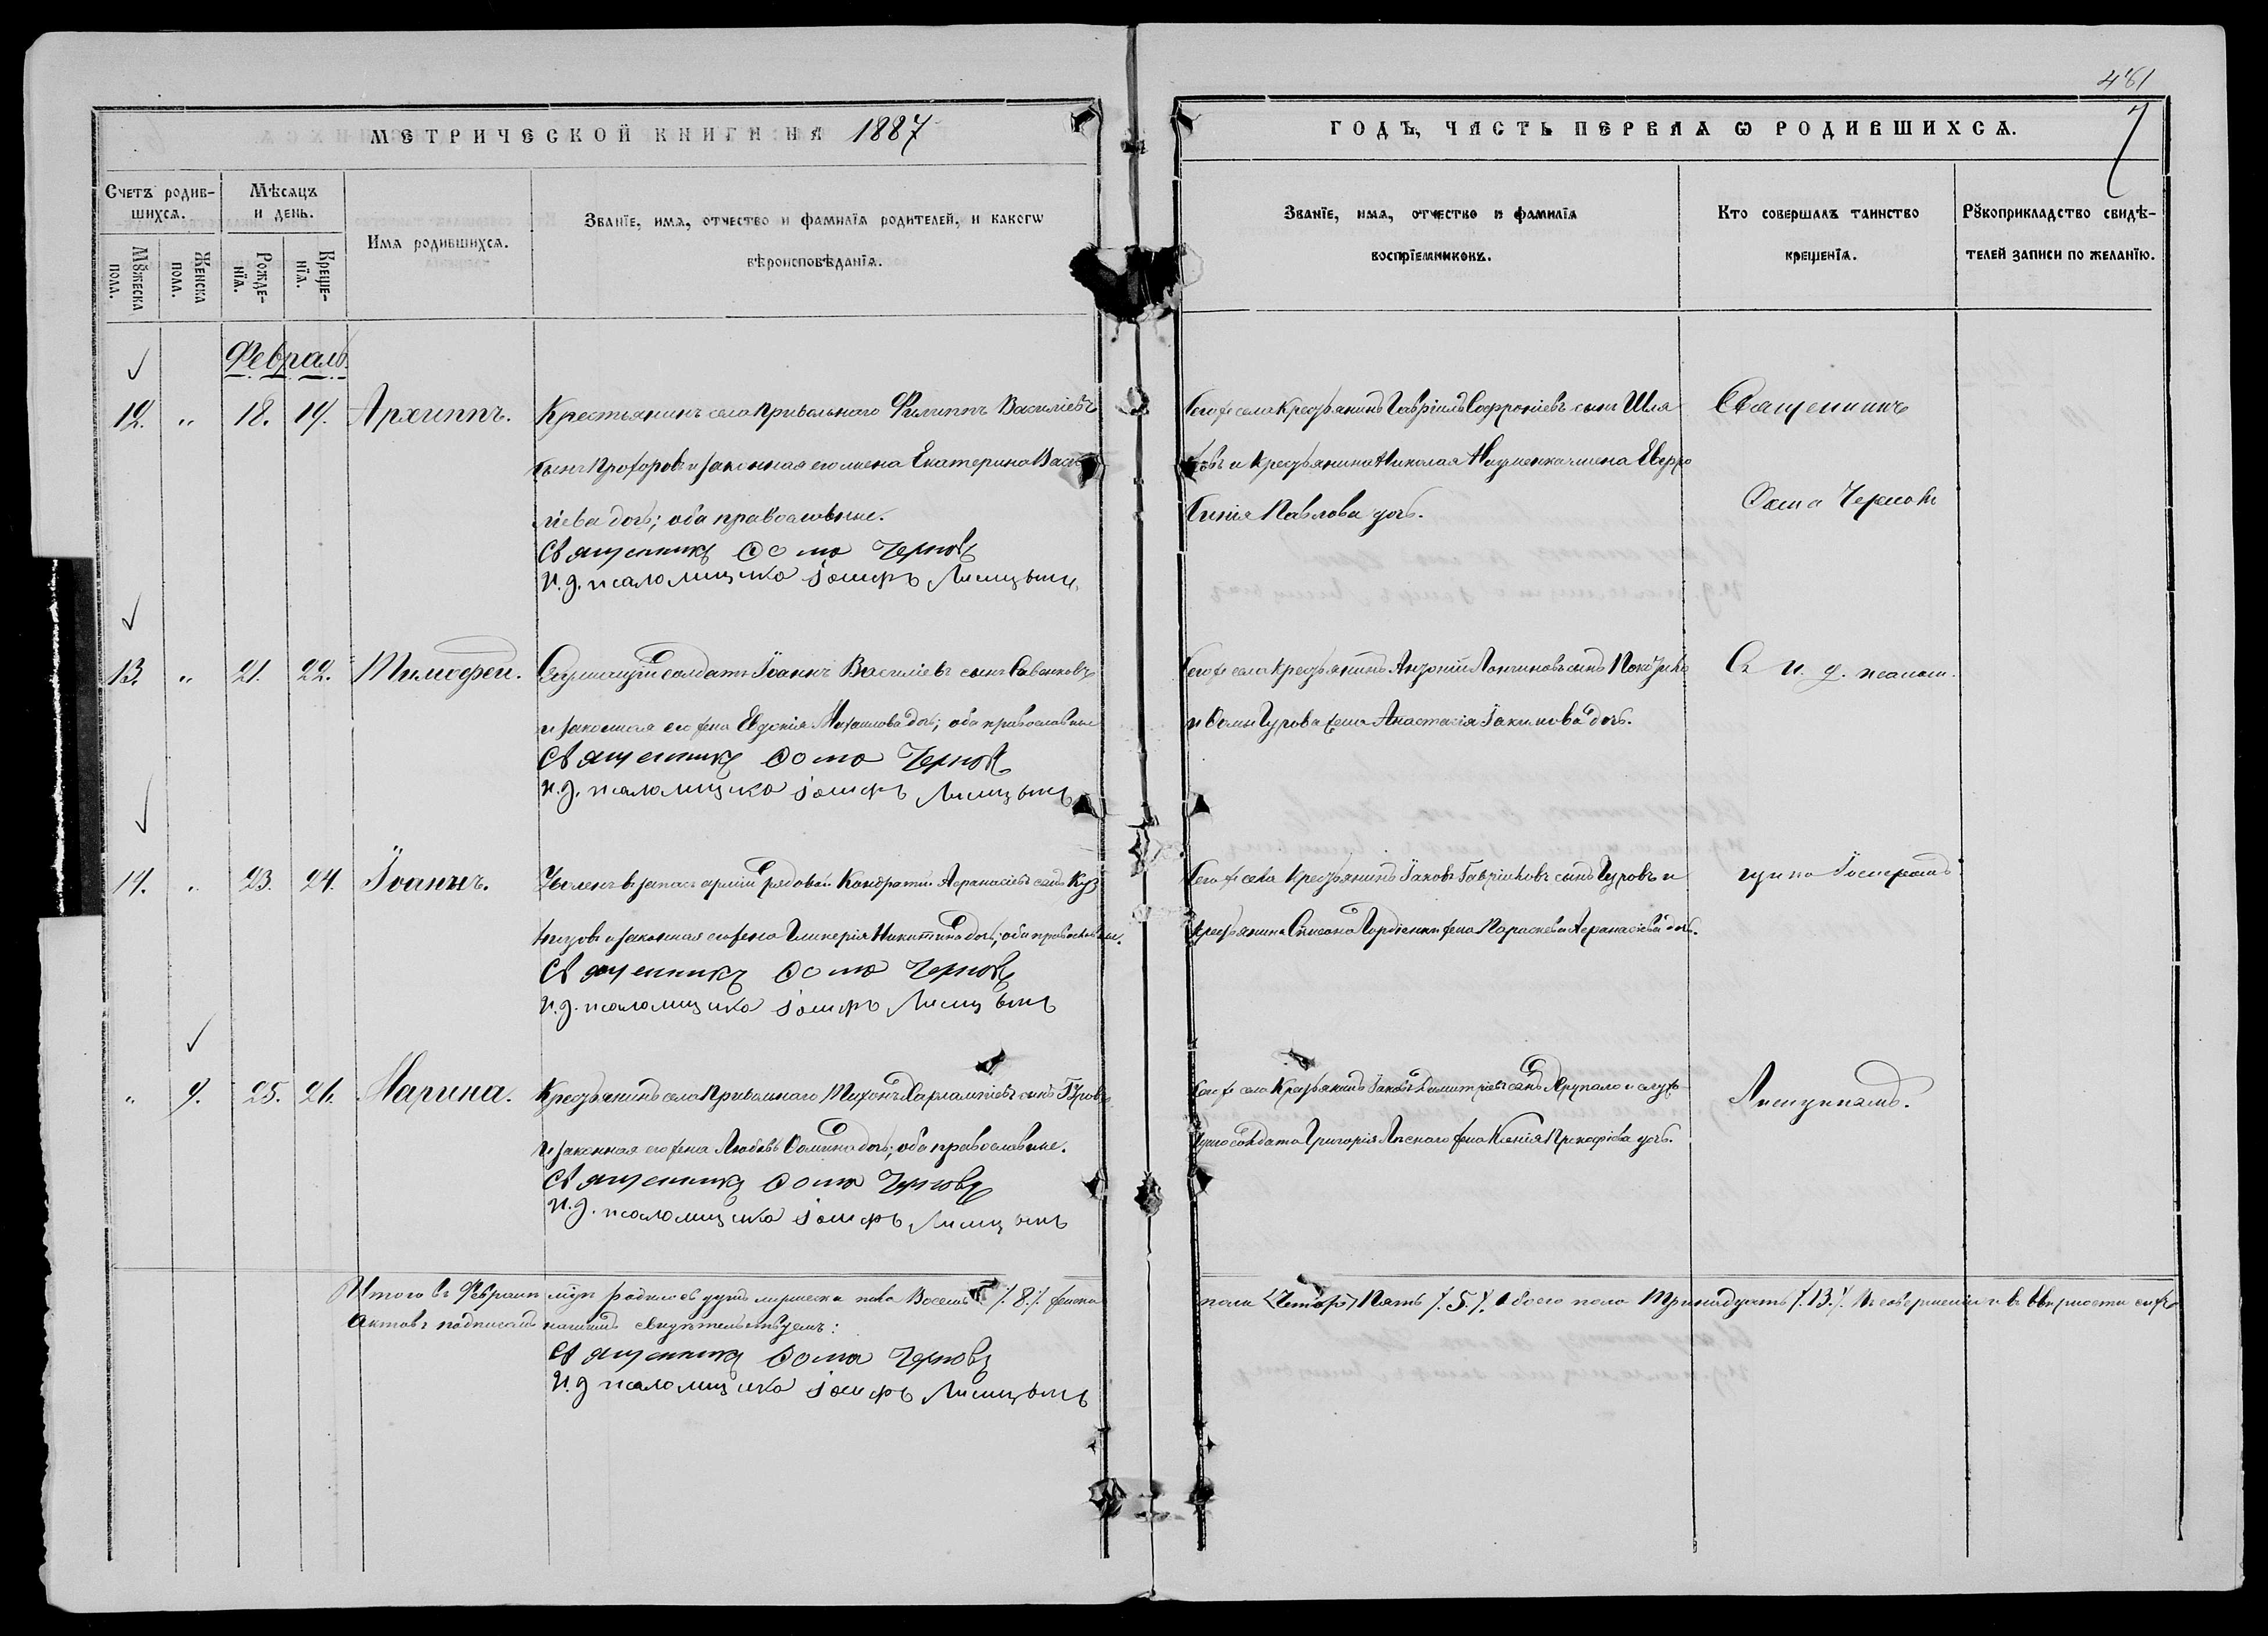 481
7
МЕТРИЧЕСКОЙ КНИГИ НА 1887
ГОДЪ, ЧАСТЬ ПЕРВАЯ Ѡ РОДИВШИХСЯ.
Счетъ родив-
шихся.
Мѣсяцъ
и день.
Мꙋжеска
пола.
Женска
пола.
Рожде-
нїя.
Креще-
нїя.
Имя родившихся.
Званїе, имя, отчество и фамилїя родителей, и какогѡ
вѣроисповѣданїя.
Званїе, имя, отчество и фамилїя
воспрїемниковъ.
Кто совершалъ таинство
крещенїя.
Рꙋкоприкладство свидѣ-
телей записи по желанїю.
Февраль.
12. " 18. 19. Архиппъ. Крестьянинъ села Привольнаго Филиппъ Василіевъ
сынъ Прохоровъ и законная его жена Екатерина Васи-
ліева дочь; оба православные.
Священникъ Ѳома Черновъ
И. д. псаломщика Іосифъ Лисицынъ
Того же села Крестьянинъ Гавріилъ Софроніевъ сынъ Шля
ховъ и Крестьянина Николая Науменка жена Евфро
синія Павлова дочь.
Священникъ
Ѳома Черновъ
13. " 21. 22. Тимофей. Служащій солдатъ Іоаннъ Василіевъ сынъ Савенковъ
и законная его жена Евдокія Михаилова дочь; оба православные
Священникъ Ѳома Черновъ
И. д. псаломщика Іосифъ Лисицынъ
Того же села Крестьянинъ Антоній Логиновъ сынъ
и Ѳомы Гурова жена Анастасія Іакимова дочь.
Съ и. д. псалом-
14. " 23. 24. Іоаннъ. Уволенъ въ запасъ арміи рядовой Кондратій Афанасіевъ сынъ Куз
нецовъ и законная его жена Гликерія Никитина дочь; оба православные.
Священникъ Ѳома Черновъ
И. д. псаломщика Іосифъ Лисицынъ
Того же села Крестьянинъ Іаковъ Гавріиловъ сынъ Гуровъ и
Крестьянина Симеона Гордіенки жена Параскева Афанасіева дочь.
щика Іосифомъ
" 9. 25. 26. Марина. Крестьянинъ села Привольнаго Тихонъ Харлампіевъ сынъ Гуровъ
и законная его жена Любовь Ѳомина дочь; оба православные.
Священникъ Ѳома Черновъ
И. д. псаломщика Іосифъ Лисицынъ
Того же села Крестьянинъ Іаковъ Димитріевъ сынъ и служа
щаго солдата Григорія Лискаго жена Ксенія Прокофіева дочь.
Лисицынымъ.
Итого въ Февралѣ м-цѣ родилось душъ мужеска пола Восемь /.8./. женска пола (Четыре) Пять /.5./. Обоего пола Тринадцать /.13./. Въ совершеніи и въ вѣрности сихъ
Актовъ подписомъ нашимъ свидѣтельствуемъ:
Священникъ Ѳома Черновъ
И. д псаломщика Іосифъ Лисицынъ